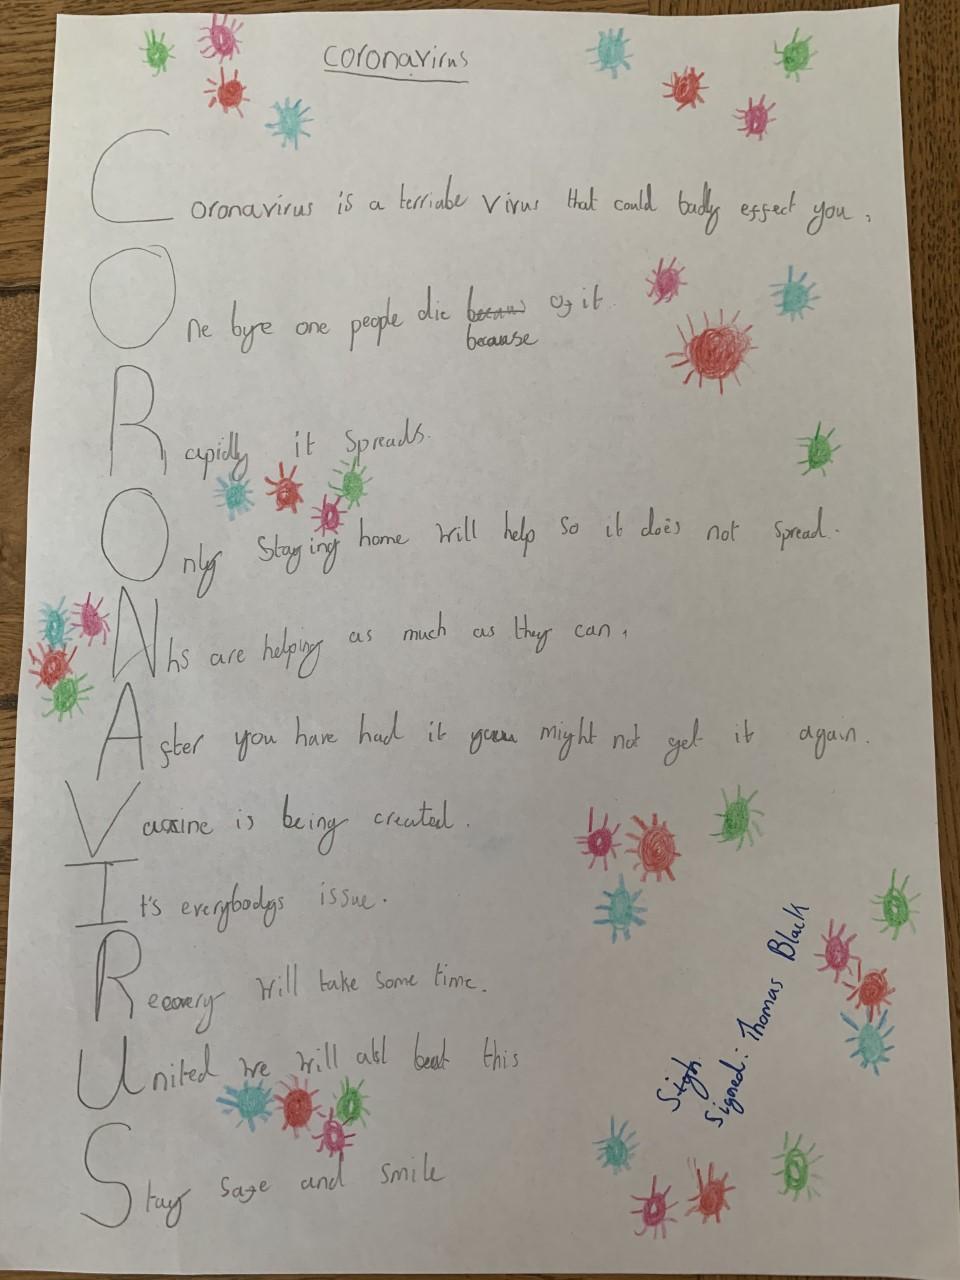 Coronavirus
Coronavirus is a terriabe virus that could badly effect you,
One bye one people die because of it.
Rapidly it spreads.
Only staying home will help so it does not spread.
Nhs are helping as much as they can,
After you have had it you might not get it again.
Vaxine is being created.
It's everybodys issue.
Recovery will take some time.
United we will all beat this
Stay safe and smile
Sigh
Signed: Thomas Black